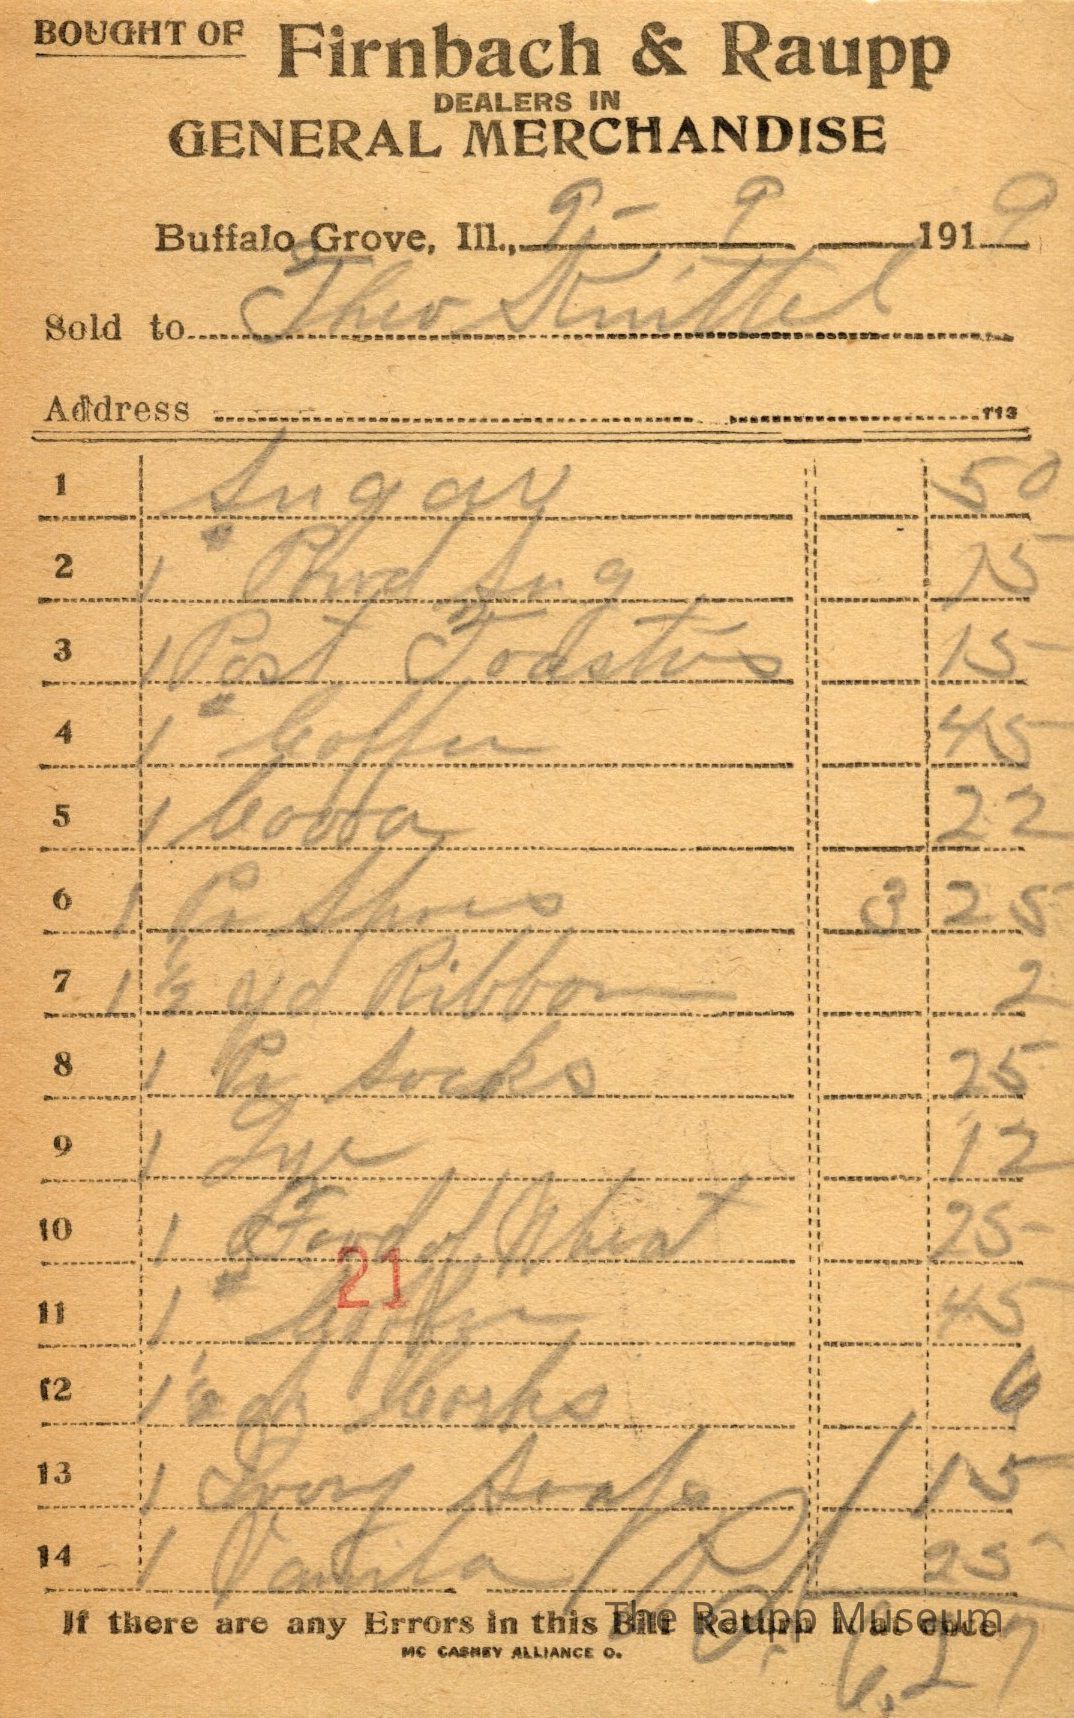 BOUGHT OF Firnbach & Raupp
DEALERS IN
GENERAL MERCHANDISE
Buffalo Grove, Ill., 9 - 9 1919
Sold to Theo Knittel
Address 113
1 Sugar 50
2 1 # Powd Sug 15
3 1 Post Toasties 15
4 1 # Coffee 45
5 1 Cocoa 22
6 1 Pr Shoes 3 25
7 1 1/2 yd Ribbon 2
8 1 Pr Socks 25
9 1 Lye 12
10 1 Food of Wheat 25
21
11 1 # Coffee 45
12 1 1/2 Corks 6
13 1 Ivory Soap 15
14 1 Vanila 25
If there are any Errors in this Bill Return it at once
The Raupp Museum
MC CASKEY ALLIANCE O.
6.27